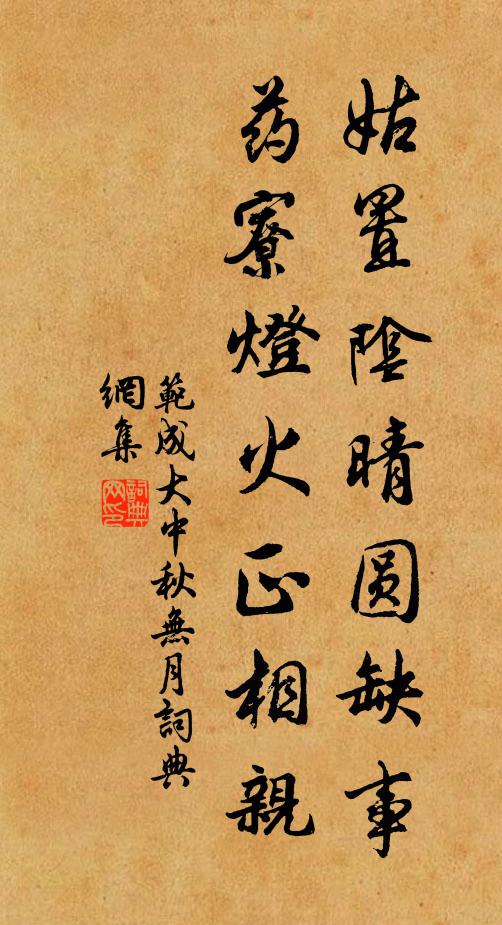 姑置陰晴圆缺事
药寮燈火正相親
範成大中秋無月詞典
網集
詞典網印